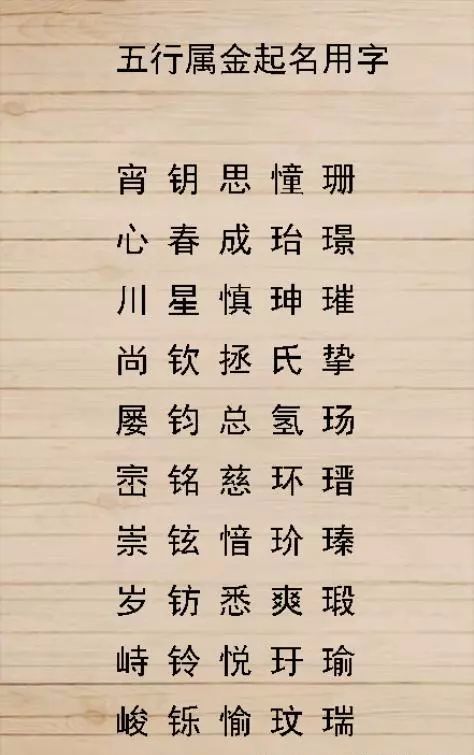 五行属金起名用字
宵 钥 思 憧 珊
心 春 成 珆 璟
川 星 慎 珅 璀
尚 钦 拯 氏 挚
屡 钧 总 氢 玚
崈 铭 慈 环 瑨
崇 铉 愔 玠 瑧
岁 钫 悉 爽 瑕
峙 铃 悦 玗 瑜
峻 铄 愉 玟 瑞